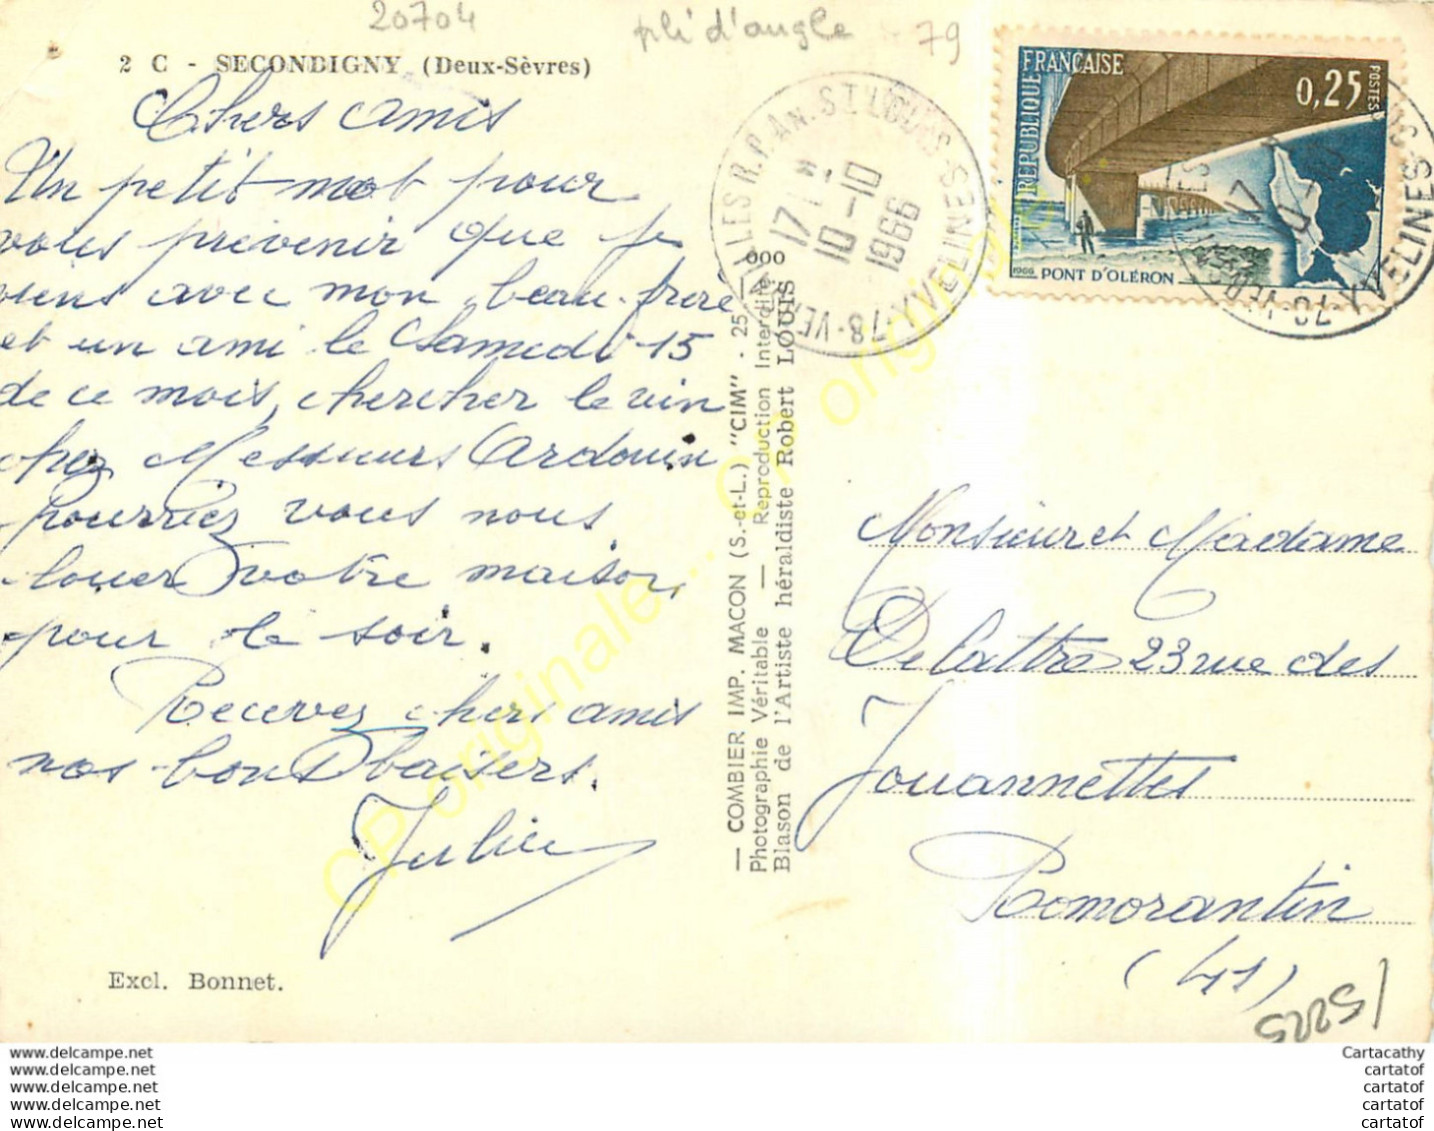 20704
pli d'angle
79
2 C - SECONDIGNY (Deux-Sèvres)
Chers amis
Un petit mot pour
vous prévenir que je
viens avec mon beau-frère
et un ami le Samedi 15
de ce mois, chercher le vin
chez Messieurs Ardouin
pourriez vous nous
louer votre maison,
pour le soir.
Recevez chers amis
nos bons baisers.
Julien
Excl. Bonnet.
— COMBIER IMP. MACON (S.-et-L.) "CIM" - 25 — 000
Photographie Véritable — Reproduction Interdite
Blason de l'Artiste héraldiste Robert LOUIS
VERSAILLES R.P. AN. ST LOUIS - SEINE
78 - YVELINES
17 H
10-10
1966
RÉPUBLIQUE FRANÇAISE
0,25
POSTES
1966 PONT D'OLÉRON
YVELINES
17
10
Monsieur et Madame
Delattre 23 rue des
Jouannettes
Romorantin
(41)
5225
www.delcampe.net
www.delcampe.net
www.delcampe.net
www.delcampe.net
www.delcampe.net
Cartacathy
cartatof
cartatof
cartatof
cartatof
CP originale... CP originale